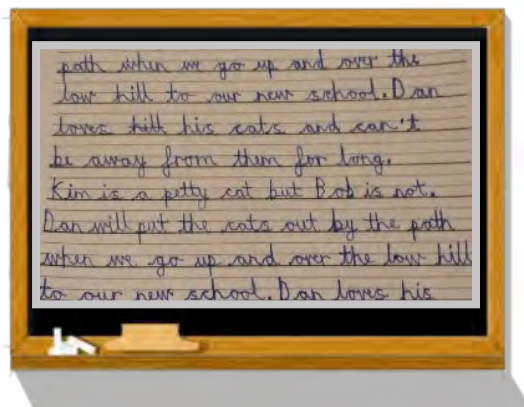 path when we go up and over the
low hill to our new school. Dan
loves hill his cats and can't
be away from them for long.
Kim is a petty cat but Bob is not.
Dan will put the cats out by the path
when we go up and over the low hill
to our new school. Dan loves his